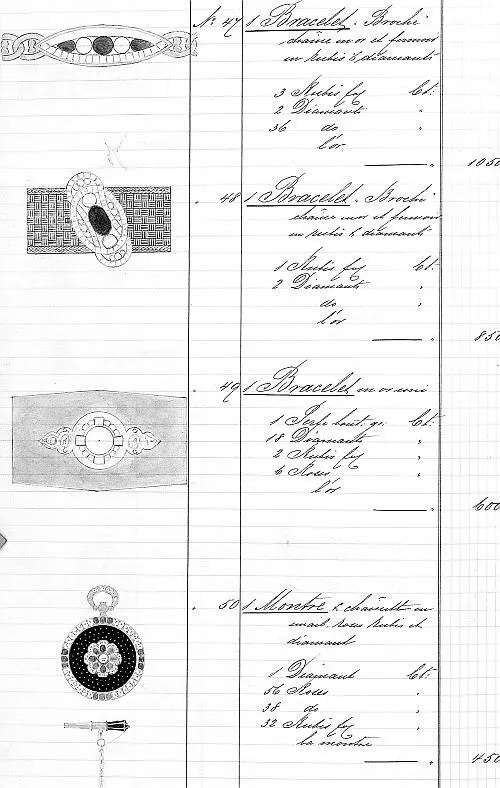 No. 47 1 Bracelet. Broche
chaine en or et fermoir
en rubis & diamants
3 Rubis Ct:
2 Diamants "
36 do "
l'or
1050
" 48 1 Bracelet. Broche
chaine en or et fermoir
en rubis & diamants
1 Rubis Ct:
2 Diamants "
do "
l'or
850
" 49 1 Bracelet en or uni
1 Perle bout. Ct:
18 Diamants "
2 Rubis "
6 Roses "
l'or
600
" 50 1 Montre & chainette en
email, roses rubis et
diamant
1 Diamant Ct:
56 Roses "
38 do "
32 Rubis "
la montre
450